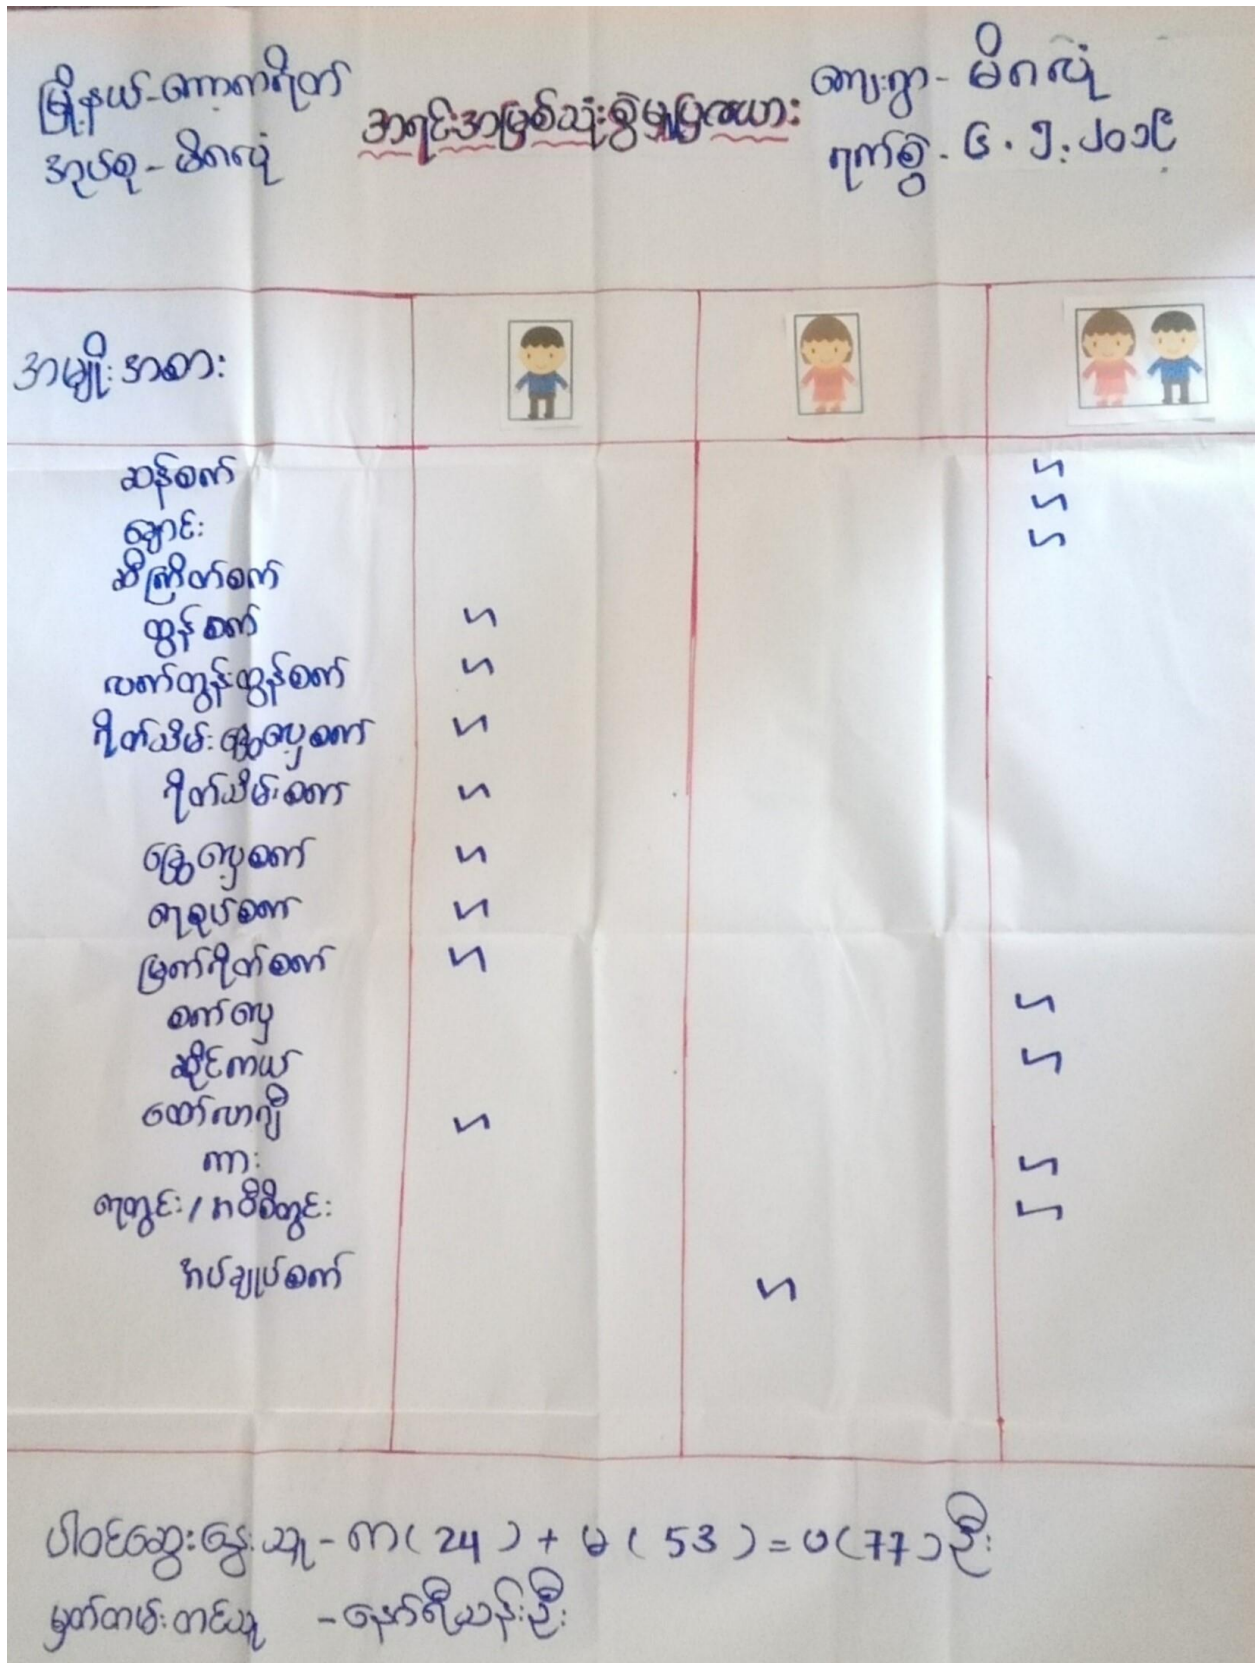 မြို့နယ်-ကော့ကရိတ်
အုပ်စု-မိဂလုံ
အရင်းအမြစ်သုံးစွဲမှုပြဇယား
ကျေးရွာ-မိဂလုံ
ရက်စွဲ-၆.၅.၂၀၁၉
အမျိုးအစား
ဆန်စက်
ချောင်း
ဆီကြိတ်စက်
ထွန်စက်
လက်တွန်းထွန်စက်
ရိတ်သိမ်းခြွေလှေ့စက်
ရိတ်သိမ်းစက်
ခြွေလှေ့စက်
ရေစုပ်စက်
မြက်ရိတ်စက်
စက်လှေ
ဆိုင်ကယ်
ထော်လာဂျီ
ကား
ရေတွင်း/အဝီစိတွင်း
အပ်ချုပ်စက်
ပါဝင်ဆွေးနွေးသူ-ကျာ(24)+မ(53)=ပ(77)ဦး
မှတ်တမ်းတင်သူ -နော်ရီသန်းဦး